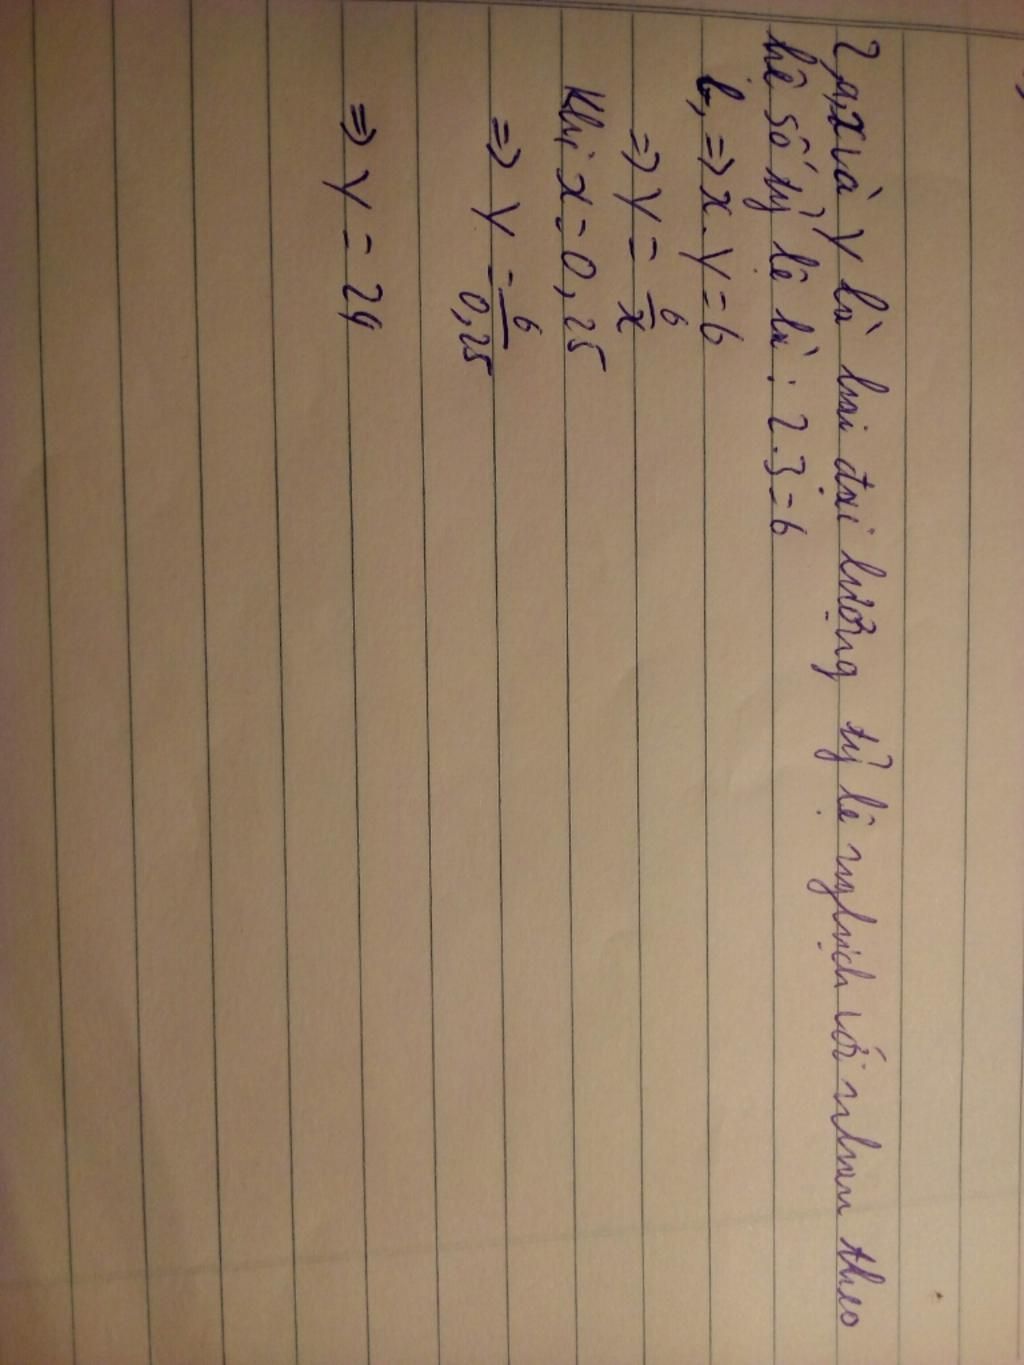 2, a, x và y là hai đại lượng tỷ lệ nghịch với nhau theo
hê số tỷ lê là: 2.3=6
b, => x.y=6
=> y = 6/x
Khi x=0,25
=> y = 6/0,25
=> y = 24